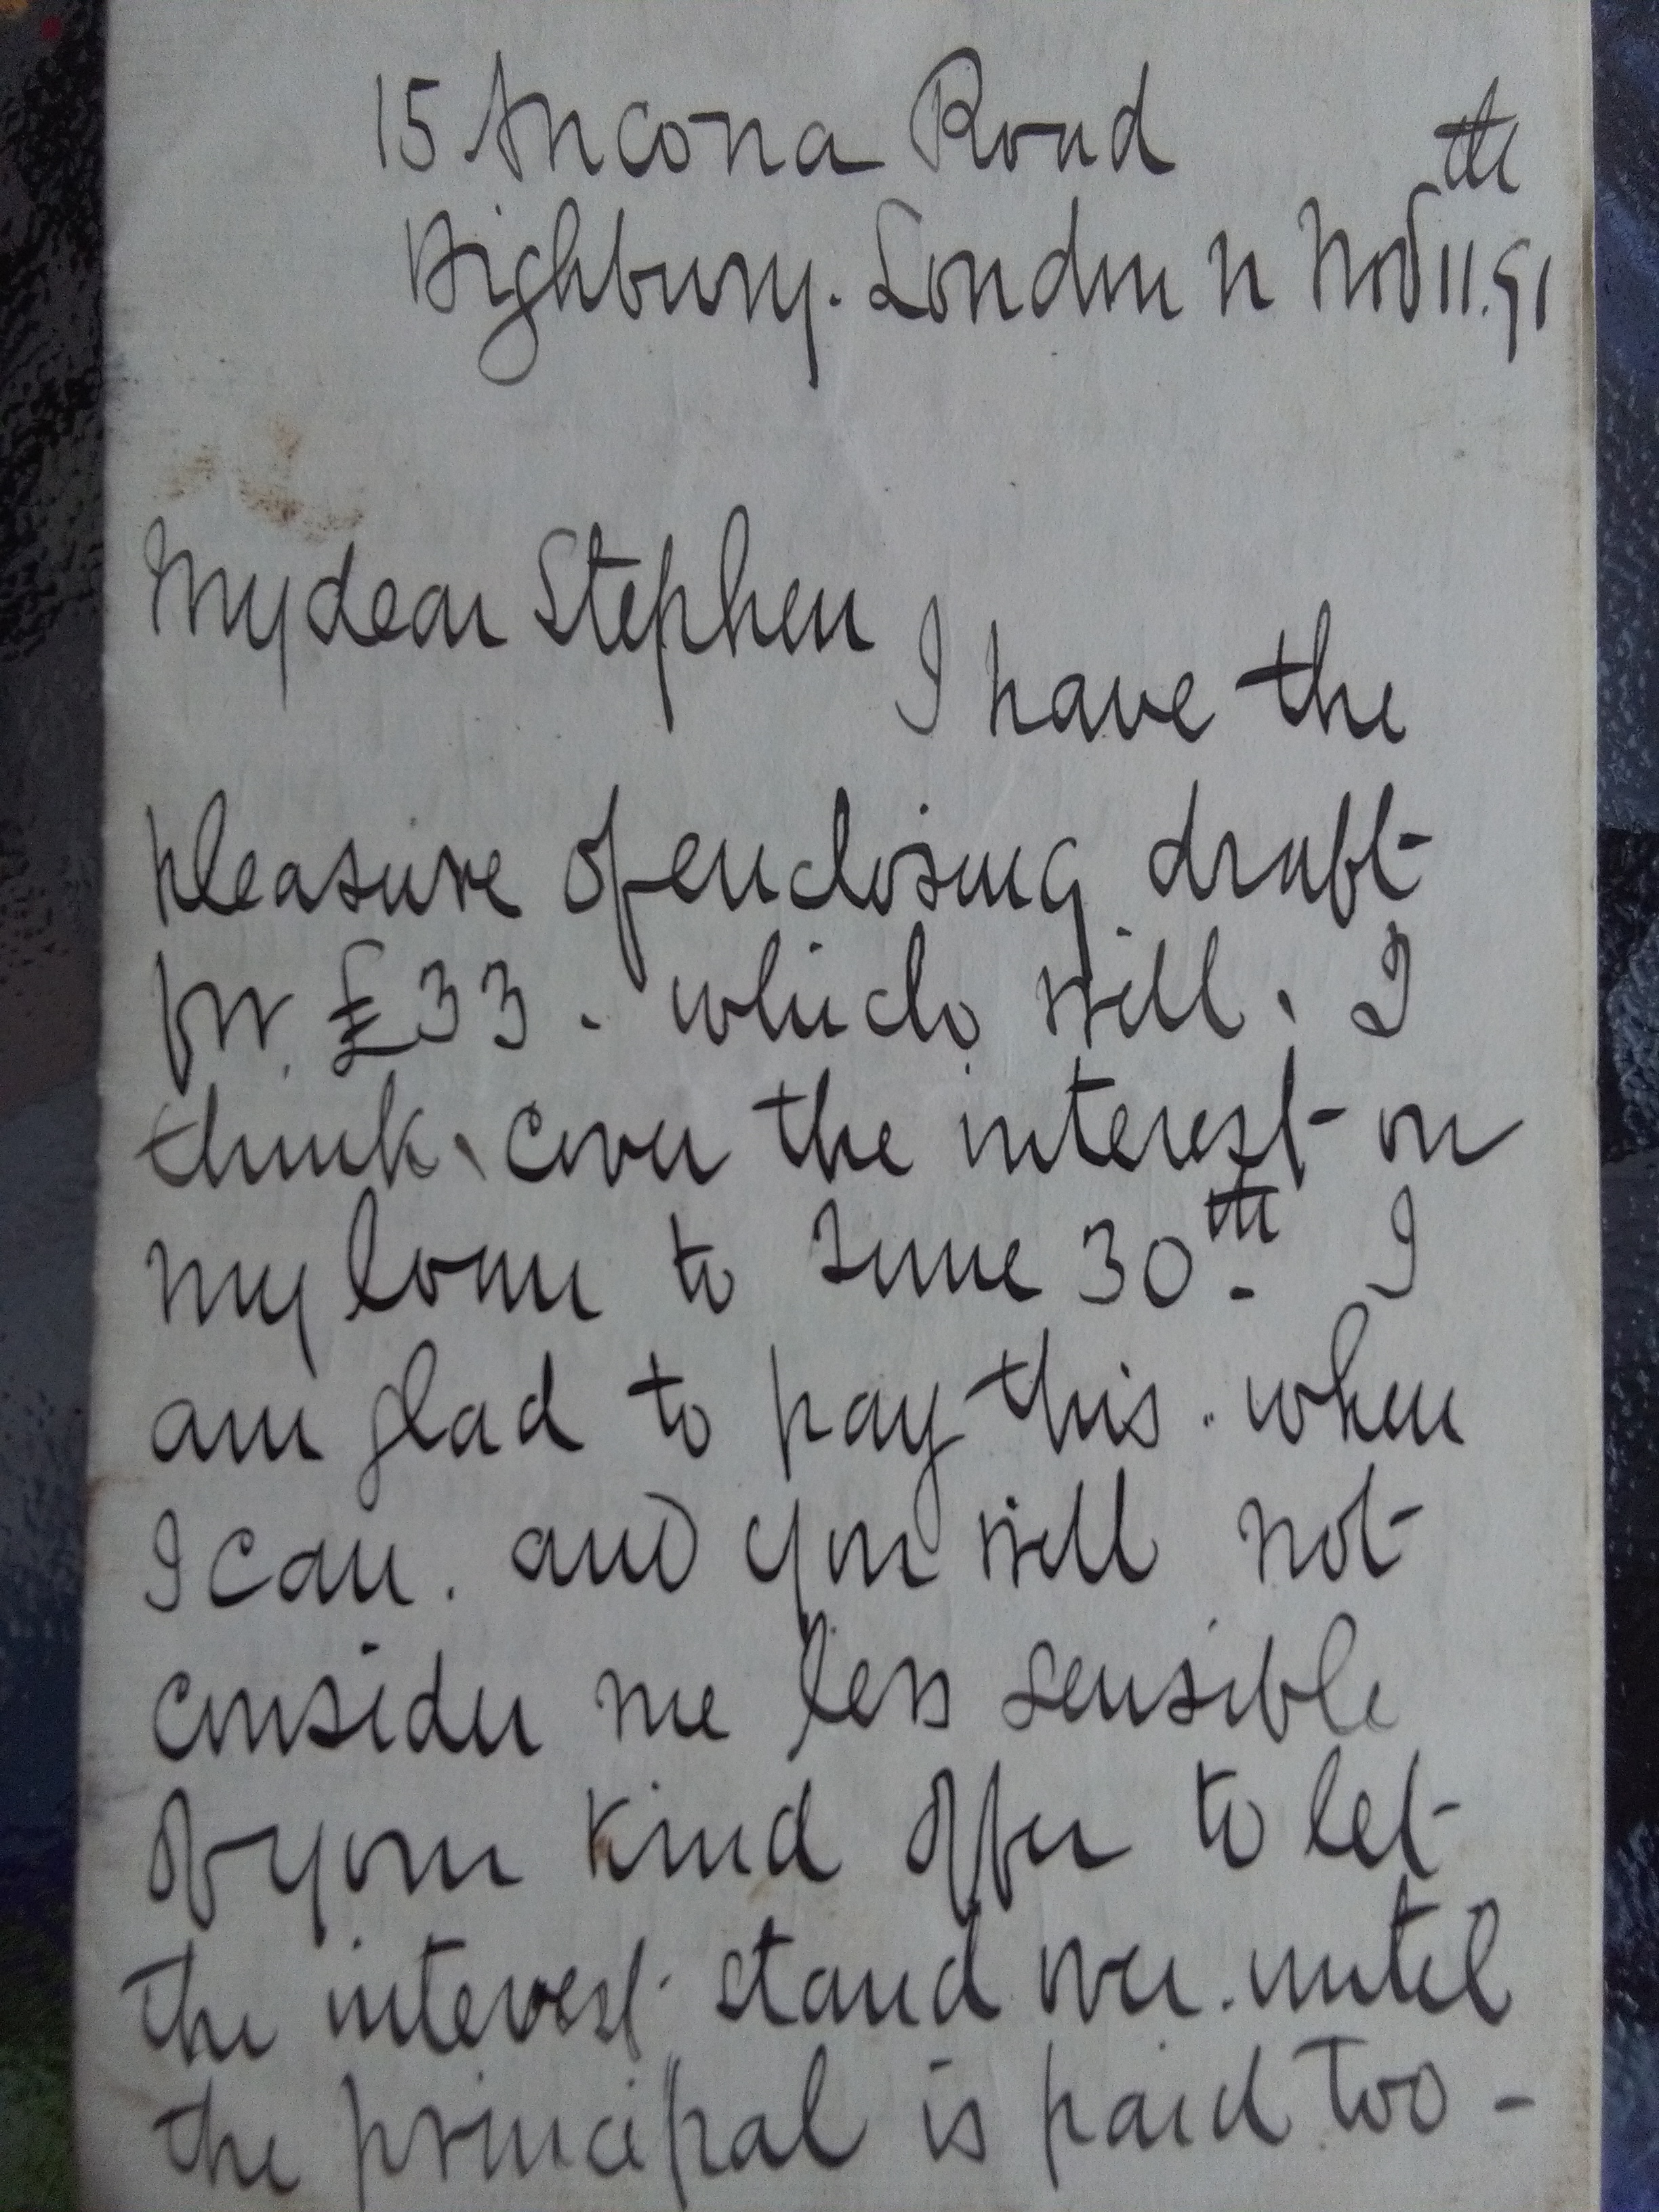 15 Ancona Road
Highbury. London N Nov 11th. 91
My dear Stephen
I have the
pleasure of enclosing draft
for £33. which will, I
think, cover the interest on
my loan to June 30th. I
am glad to pay this. when
I can. and you will not
consider me less sensible
of your kind offer to let
the interest stand over. until
the principal is paid too -